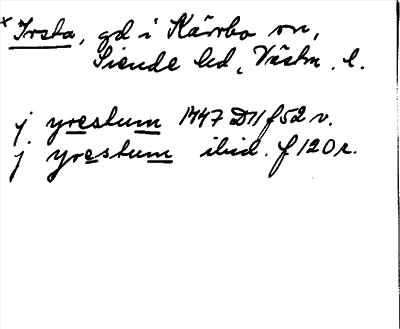 *Irsta, gd i Kärrbo sn,
Siende hd, Västm. l.
j yrestum 1447 D11 f 52 v.
j yrestum ibid. f 120 r.